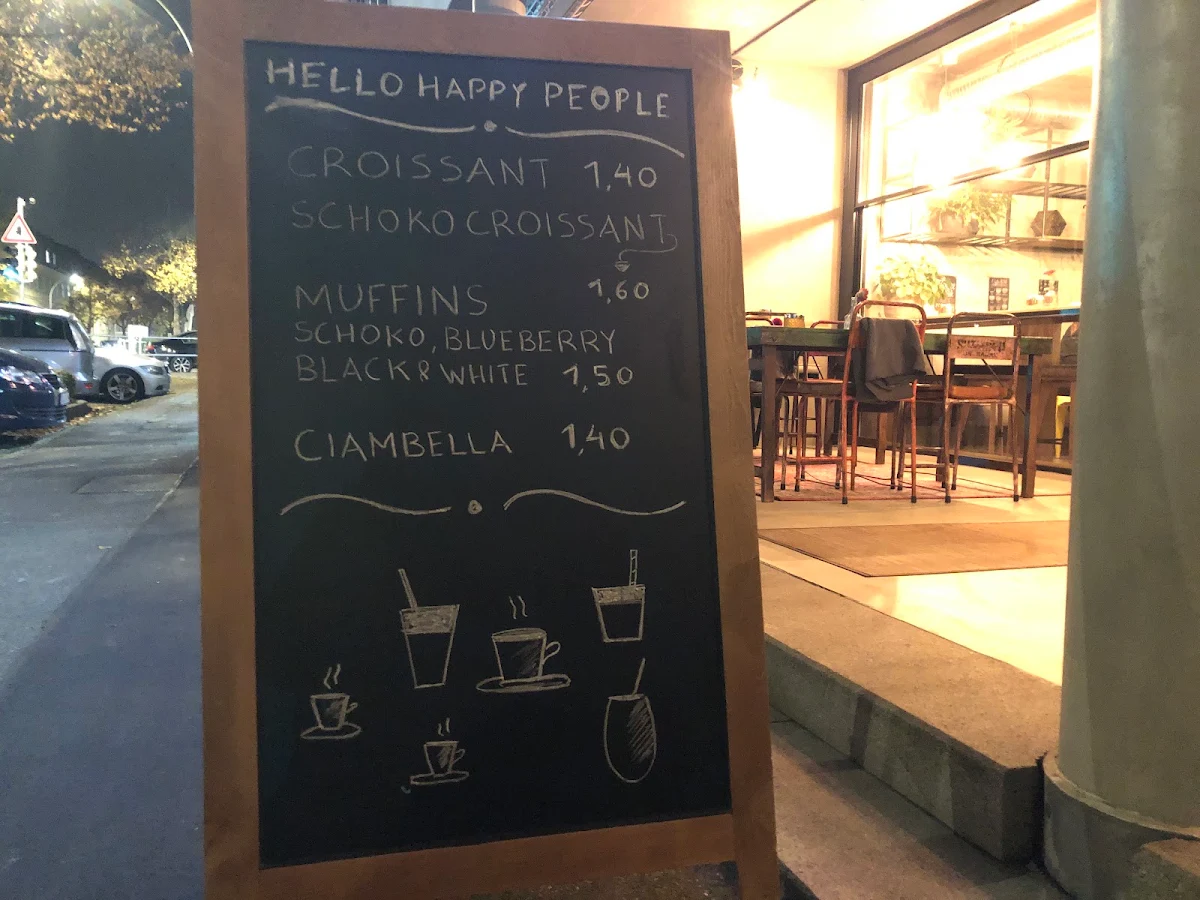 HELLO HAPPY PEOPLE
CROISSANT 1,40
SCHOKO CROISSANT
1,60
MUFFINS
SCHOKO, BLUEBERRY
BLACK & WHITE 1,50
CIAMBELLA 1,40